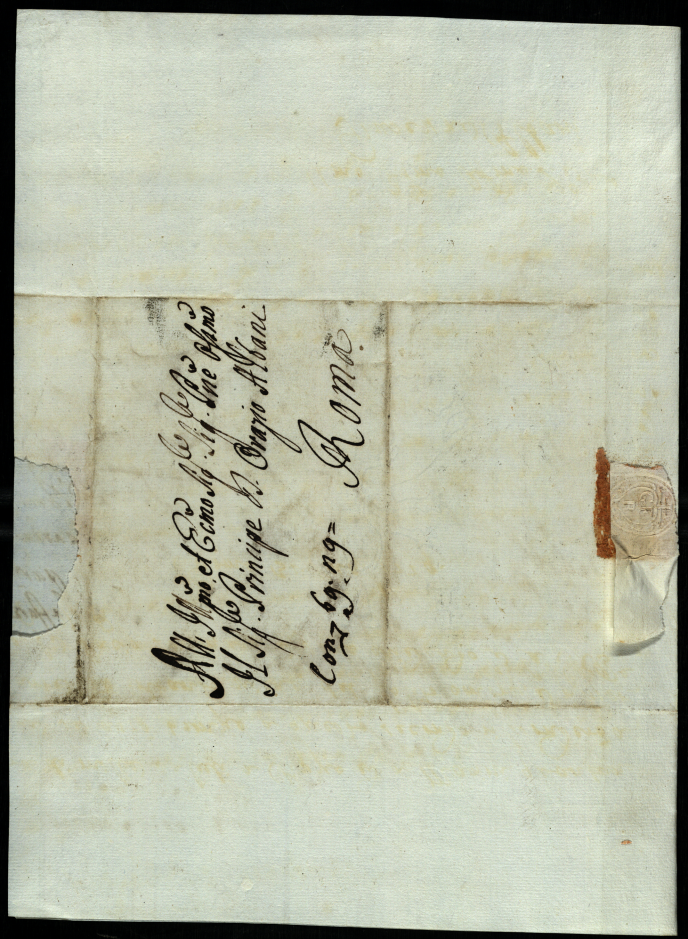 All' Ill.mo et Ecc.mo Sig.re Sig.re P.ne Oss.mo
Il Sig.re Principe D. Orazio Albani
Roma.
Con